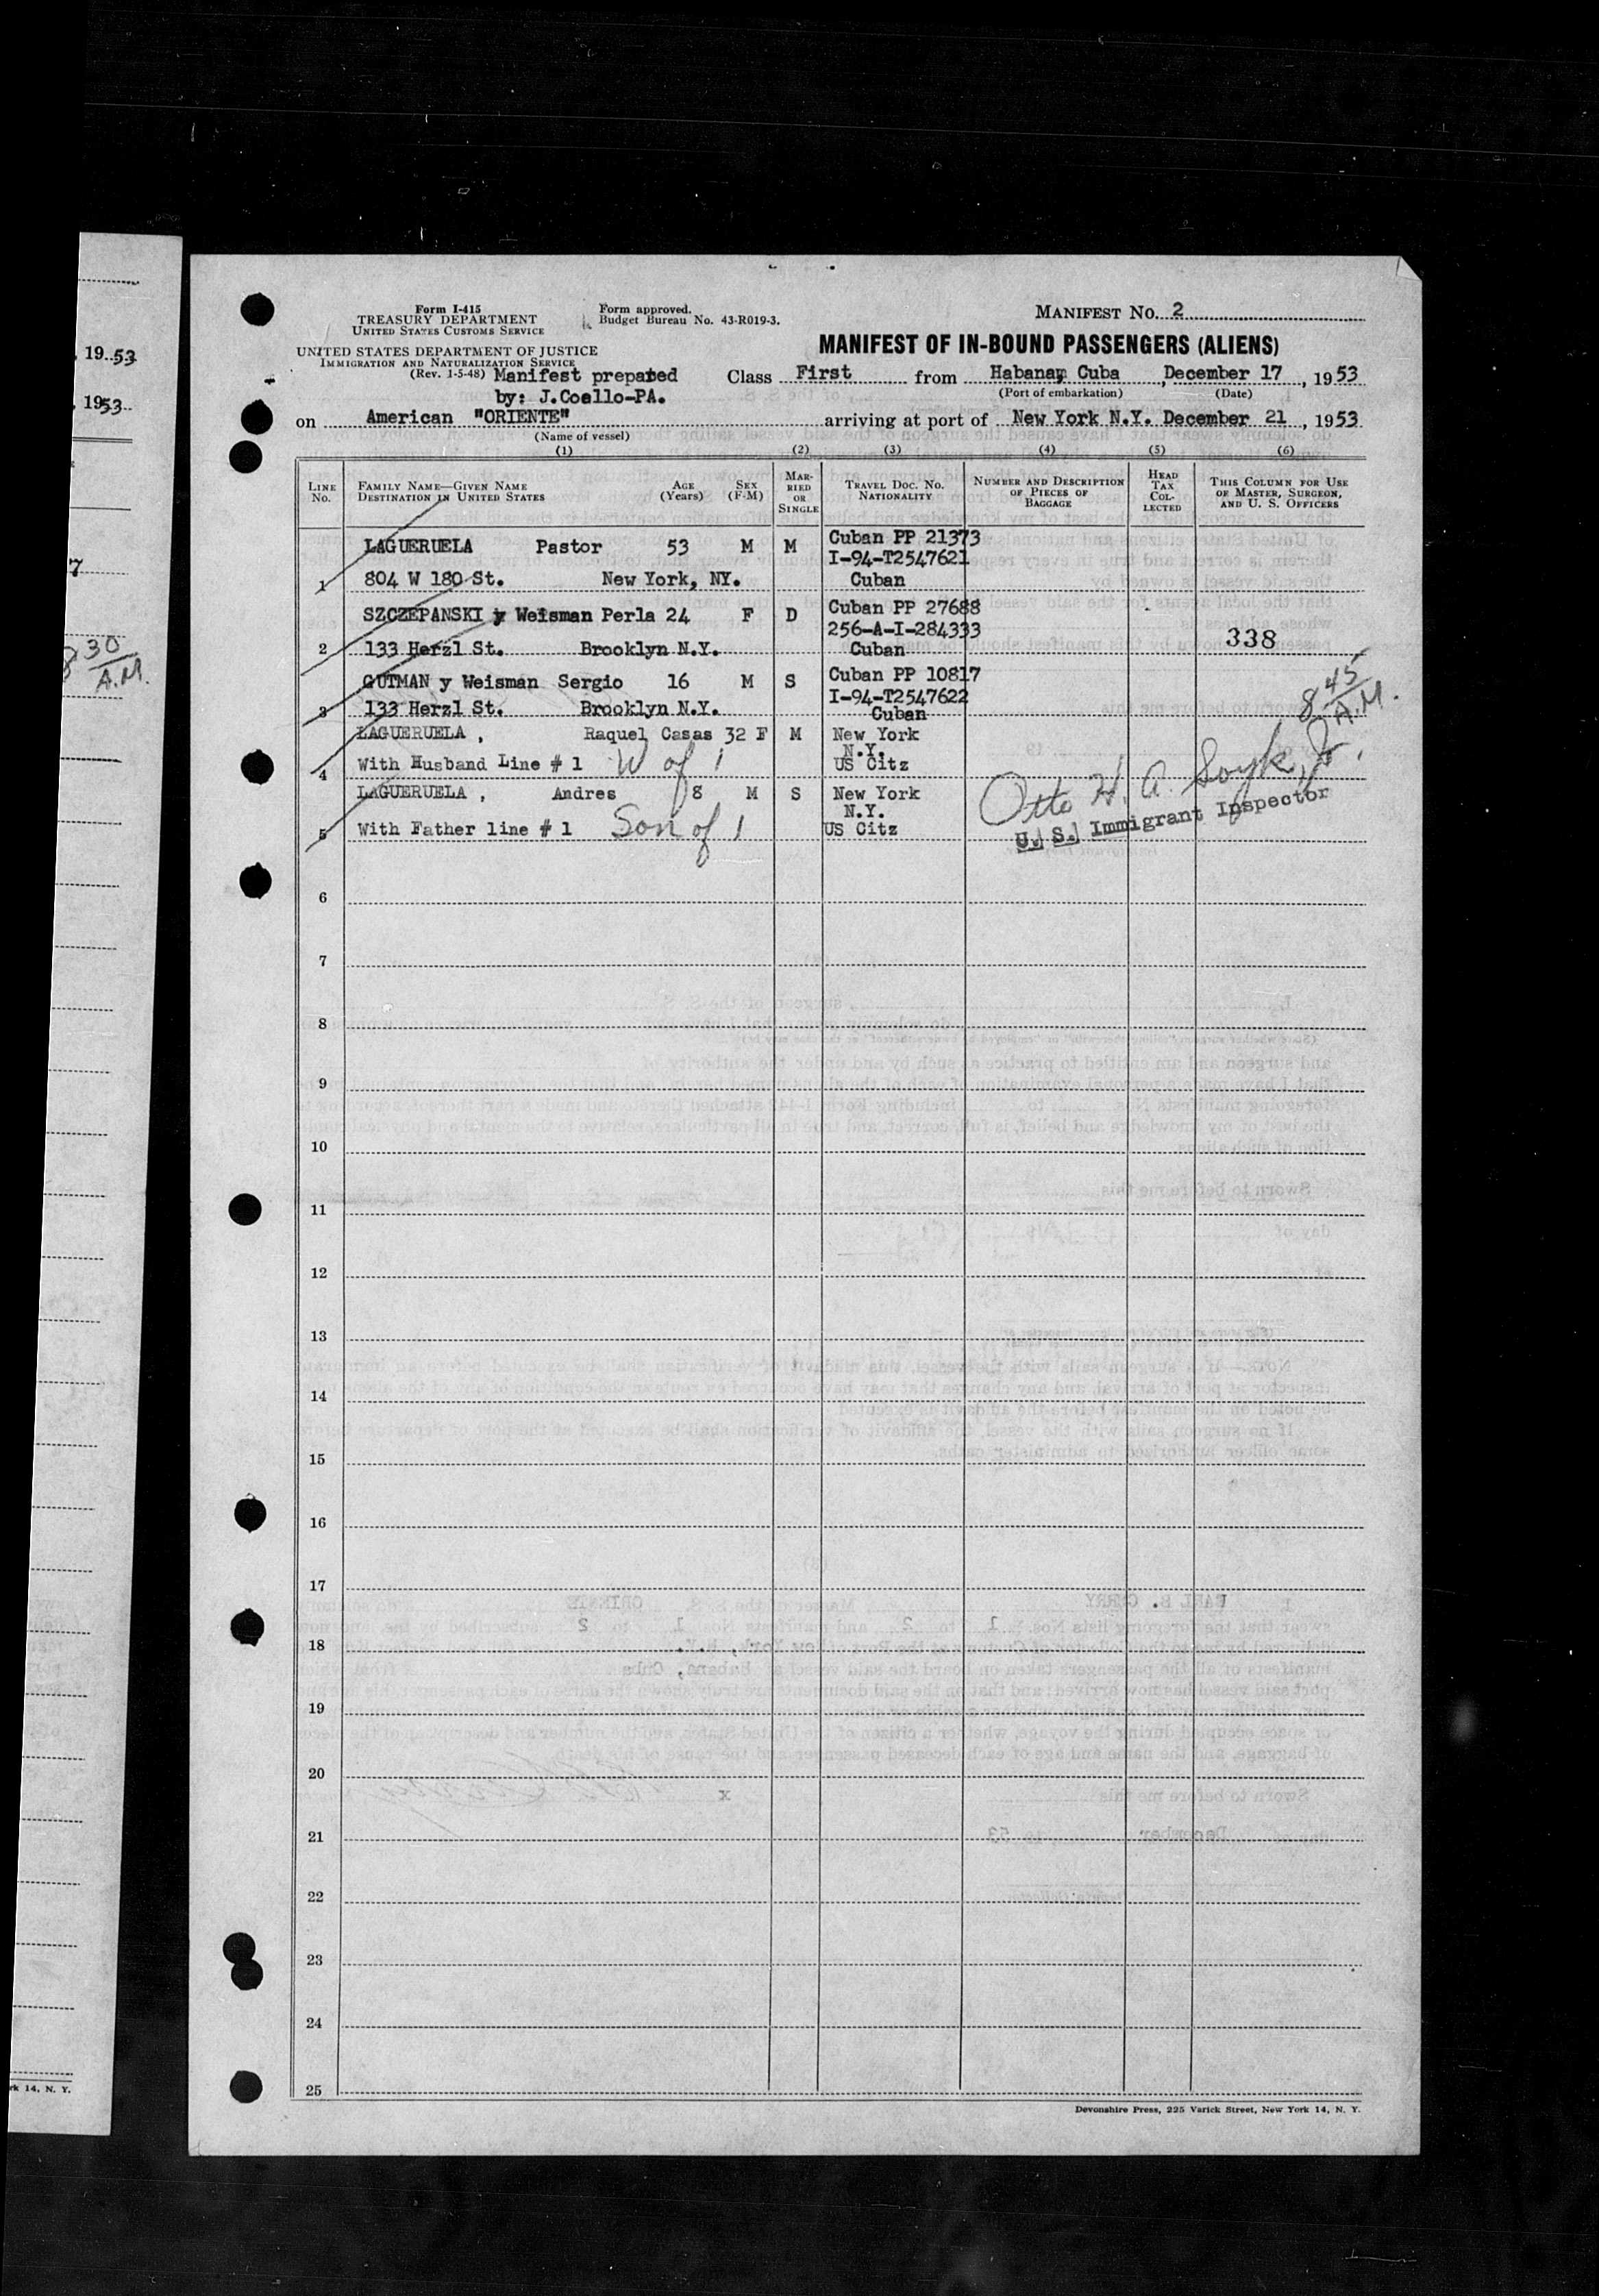 19 53
1953
7
8 30
A.M.
rk 14, N. Y.
Form I-415
TREASURY DEPARTMENT
UNITED STATES CUSTOMS SERVICE
Form approved.
Budget Bureau No. 43-R019-3.
MANIFEST NO. 2
UNITED STATES DEPARTMENT OF JUSTICE
IMMIGRATION AND NATURALIZATION SERVICE
(Rev. 1-5-48) Manifest prepared
by: J.Coello-PA.
MANIFEST OF IN-BOUND PASSENGERS (ALIENS)
Class First from Habana, Cuba, December 17, 1953
(Port of embarkation) (Date)
on American "ORIENTE" arriving at port of New York N.Y. December 21, 1953
(Name of vessel)
(1) (2) (3) (4) (5) (6)
LINE NO.
FAMILY NAME—GIVEN NAME
DESTINATION IN UNITED STATES
AGE (Years)
SEX (F-M)
MARRIED OR SINGLE
TRAVEL DOC. NO.
NATIONALITY
NUMBER AND DESCRIPTION OF PIECES OF BAGGAGE
HEAD TAX COLLECTED
THIS COLUMN FOR USE OF MASTER, SURGEON, AND U. S. OFFICERS
LAGUERUELA Pastor 53 M M Cuban PP 21373
I-94-T2547621
1 804 W 180 St. New York, NY. Cuban
SZCZEPANSKI y Weisman Perla 24 F D Cuban PP 27688
256-A-I-284333
2 133 Herzl St. Brooklyn N.Y. Cuban 338
GUTMAN y Weisman Sergio 16 M S Cuban PP 10817
I-94-T2547622
3 133 Herzl St. Brooklyn N.Y. Cuban
8 45
A.M.
LAGUERUELA, Raquel Casas 32 F M New York
N.Y.
4 With Husband Line # 1 W of 1 US Citz
LAGUERUELA, Andres 8 M S New York
N.Y.
5 With Father line # 1 Son of 1 US Citz
Otto H. A. Soyk, Jr.
U. S. Immigrant Inspector
6
7
8
9
10
11
12
13
14
15
16
17
18
19
20
21
22
23
24
25
Devonshire Press, 225 Varick Street, New York 14, N. Y.